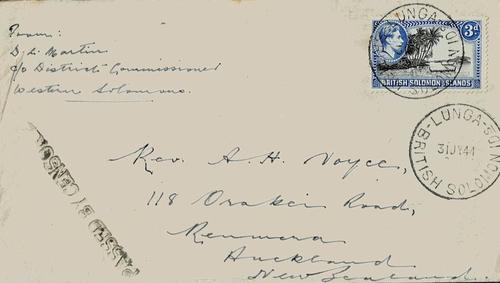 From:
D. L. Martin
c/o District Commissioner
Western Solomons.
LUNGA-SOLOMON
3d
BRITISH SOLOMON ISLANDS
LUNGA-SOLOMON
BRITISH SOLOMON
31 JY 44
PASSED BY CENSOR
Rev. A. H. Voyce,
118 Orakei Road,
Remuera
Auckland
New Zealand.